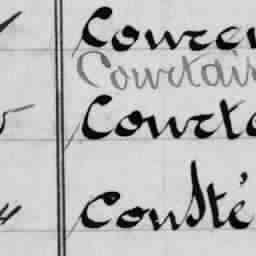 Couren
Courtain
Courta
Cousté